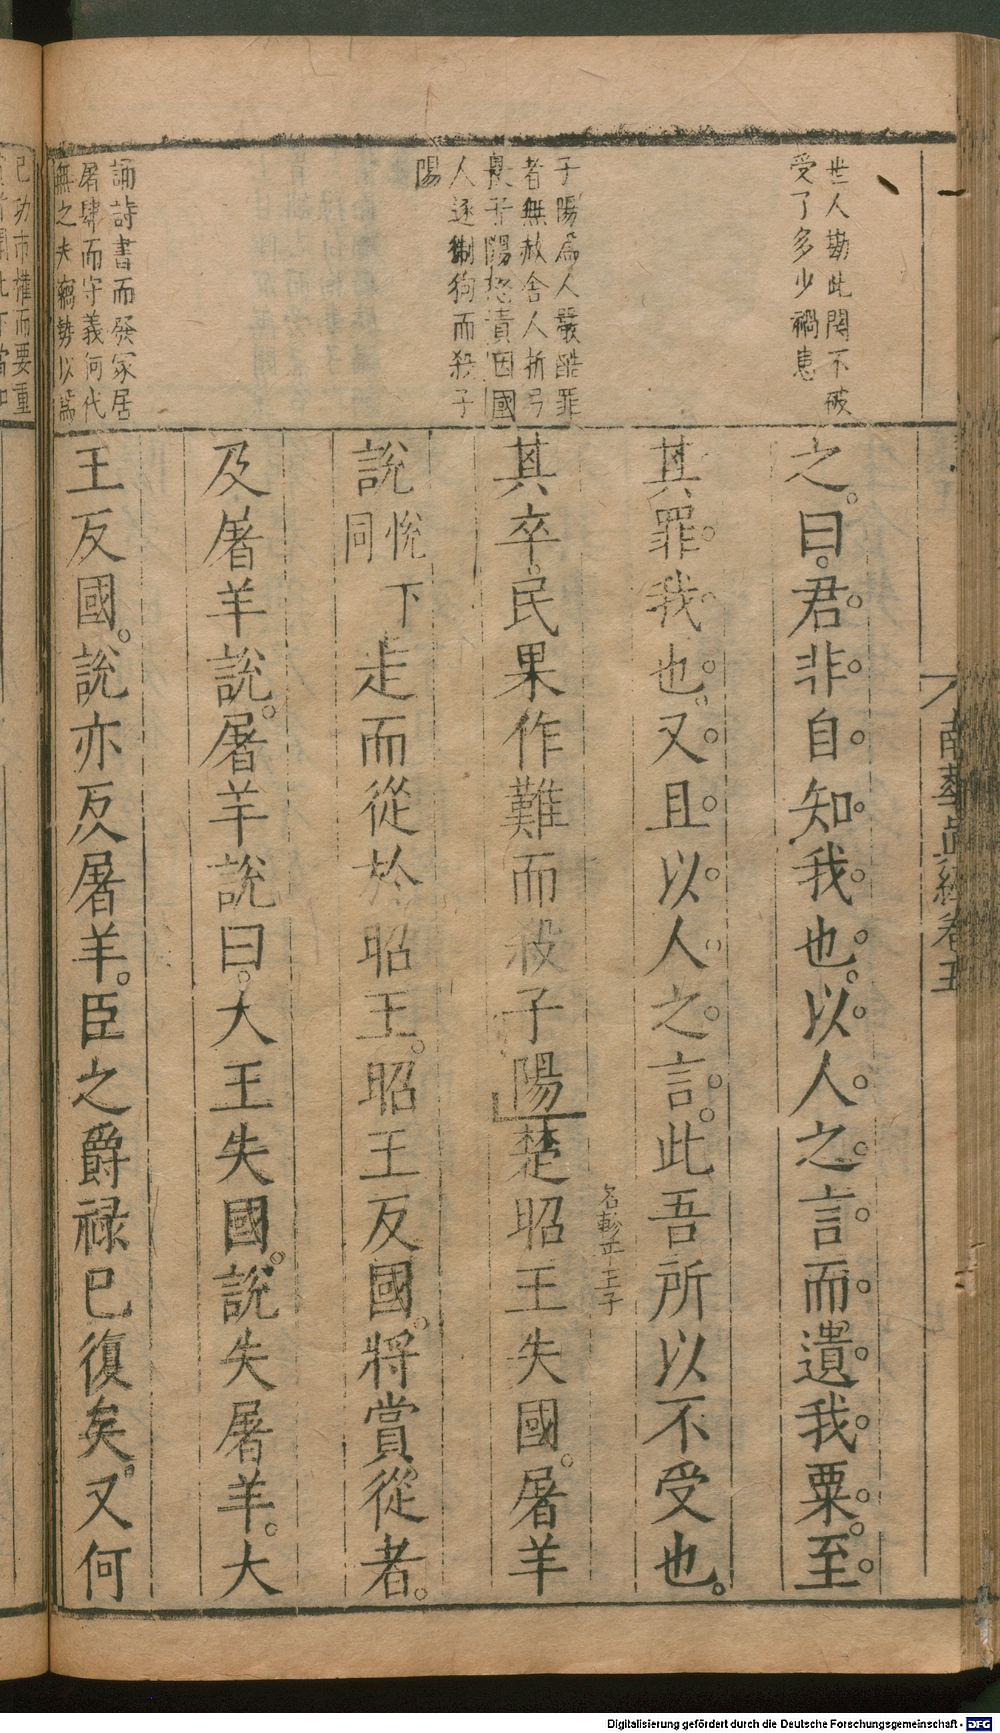 南華眞經卷五
世人勘此関不破
受了多少禍患
之。曰。君非自知我也。以人之言而遺我粟。至
其罪我也。又且以人之言。此吾所以不受也。
子陽爲人嚴酷罪
者無赦舍人折弓
畏子陽怒責因國
人逐猘狗而殺子
陽
其卒。民果作難而殺子陽楚昭王失國。屠羊
名軫平王子
說悅同下走而從於昭王。昭王反國。將賞從者。
及屠羊說。屠羊說曰。大王失國。說失屠羊。大
誦詩書而發冢居
屠肆而守義何代
無之夫竊勢以爲
王反國。說亦反屠羊。臣之爵祿已復矣。又何
Digitalisierung gefördert durch die Deutsche Forschungsgemeinschaft - DFG